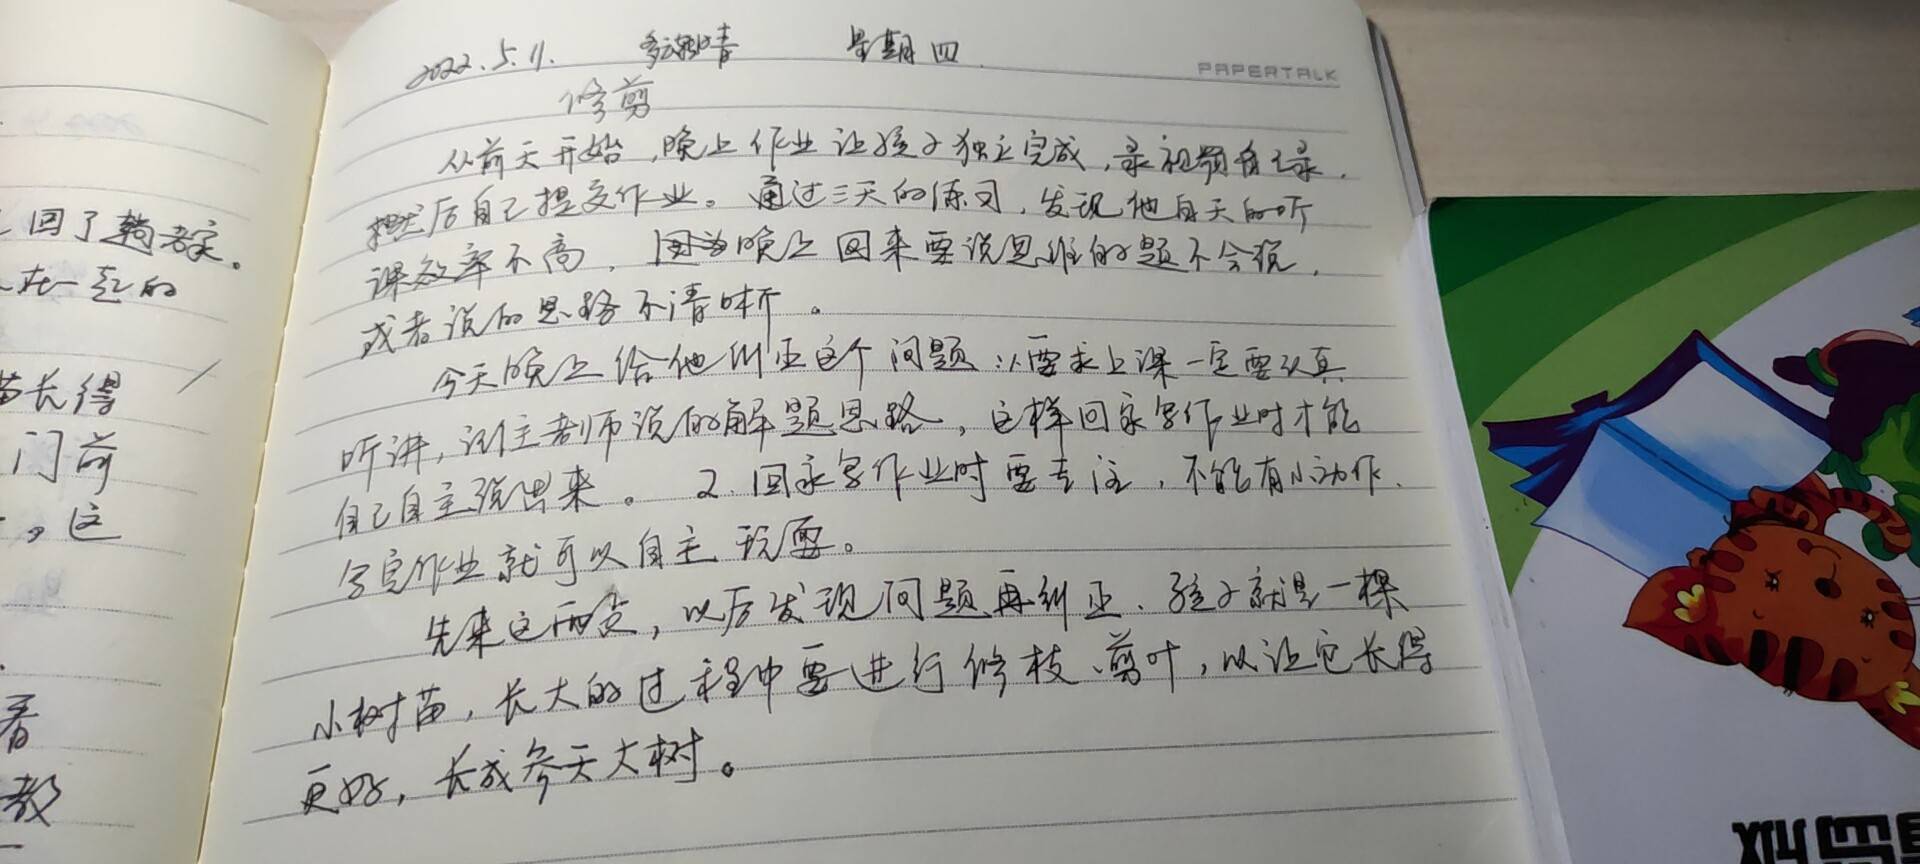 回了趟老家。
在一起的
苗长得
门前
。这
看
教
2022.5.11. 多云转晴 星期四
PAPERTALK
修剪
从前天开始,晚上作业让孩子独立完成,录视频自己录,
然后自己提交作业。通过三天的练习,发现他白天的听
课效率不高,因为晚上回来要说思维的题不会说,
或者说的思路不清晰。
今天晚上给他纠正这个问题:1.要求上课一定要认真
听讲,记住老师说的解题思路,这样回家写作业时才能
自己自主说出来。2.回家写作业时要专注,不能有小动作.
写完作业就可以自主玩耍。
先来这两点,以后发现问题再纠正、孩子就是一棵
小树苗,长大的过程中要进行修枝、剪叶,以让它长得
更好,长成参天大树。